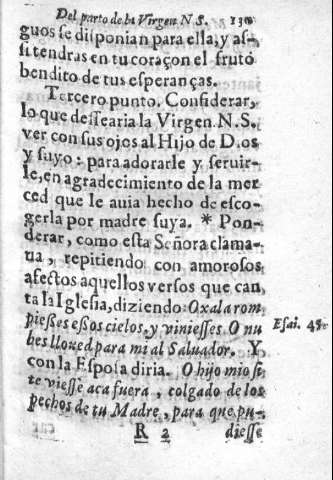 Del parto de la Virgen N. S. 130
guos se disponian para ella, y as-
si tendras en tu coraçon el fruto
bendito de tus esperanças.
Tercero punto. Considerar,
lo que dessearia la Virgen. N. S.
ver con sus ojos al Hijo de D.os
y suyo: para adorarle y seruir-
le, en agradecimiento de la mer
ced que le auia hecho de esco-
gerla por madre suya. * Pon-
derar, como esta Señora clama-
ua, repitiendo con amorosos
afectos aquellos versos que can
ta la Iglesia, diziendo: Oxala rom
piesses essos cielos, y viniesses O nu
bes lloued para mi al Saluador. Y
Esai. 45.
con la Esposa diria. O hijo mio si
te viesse aca fuera, colgado de los
pechos de tu Madre, para que pu-
R 2 diesse